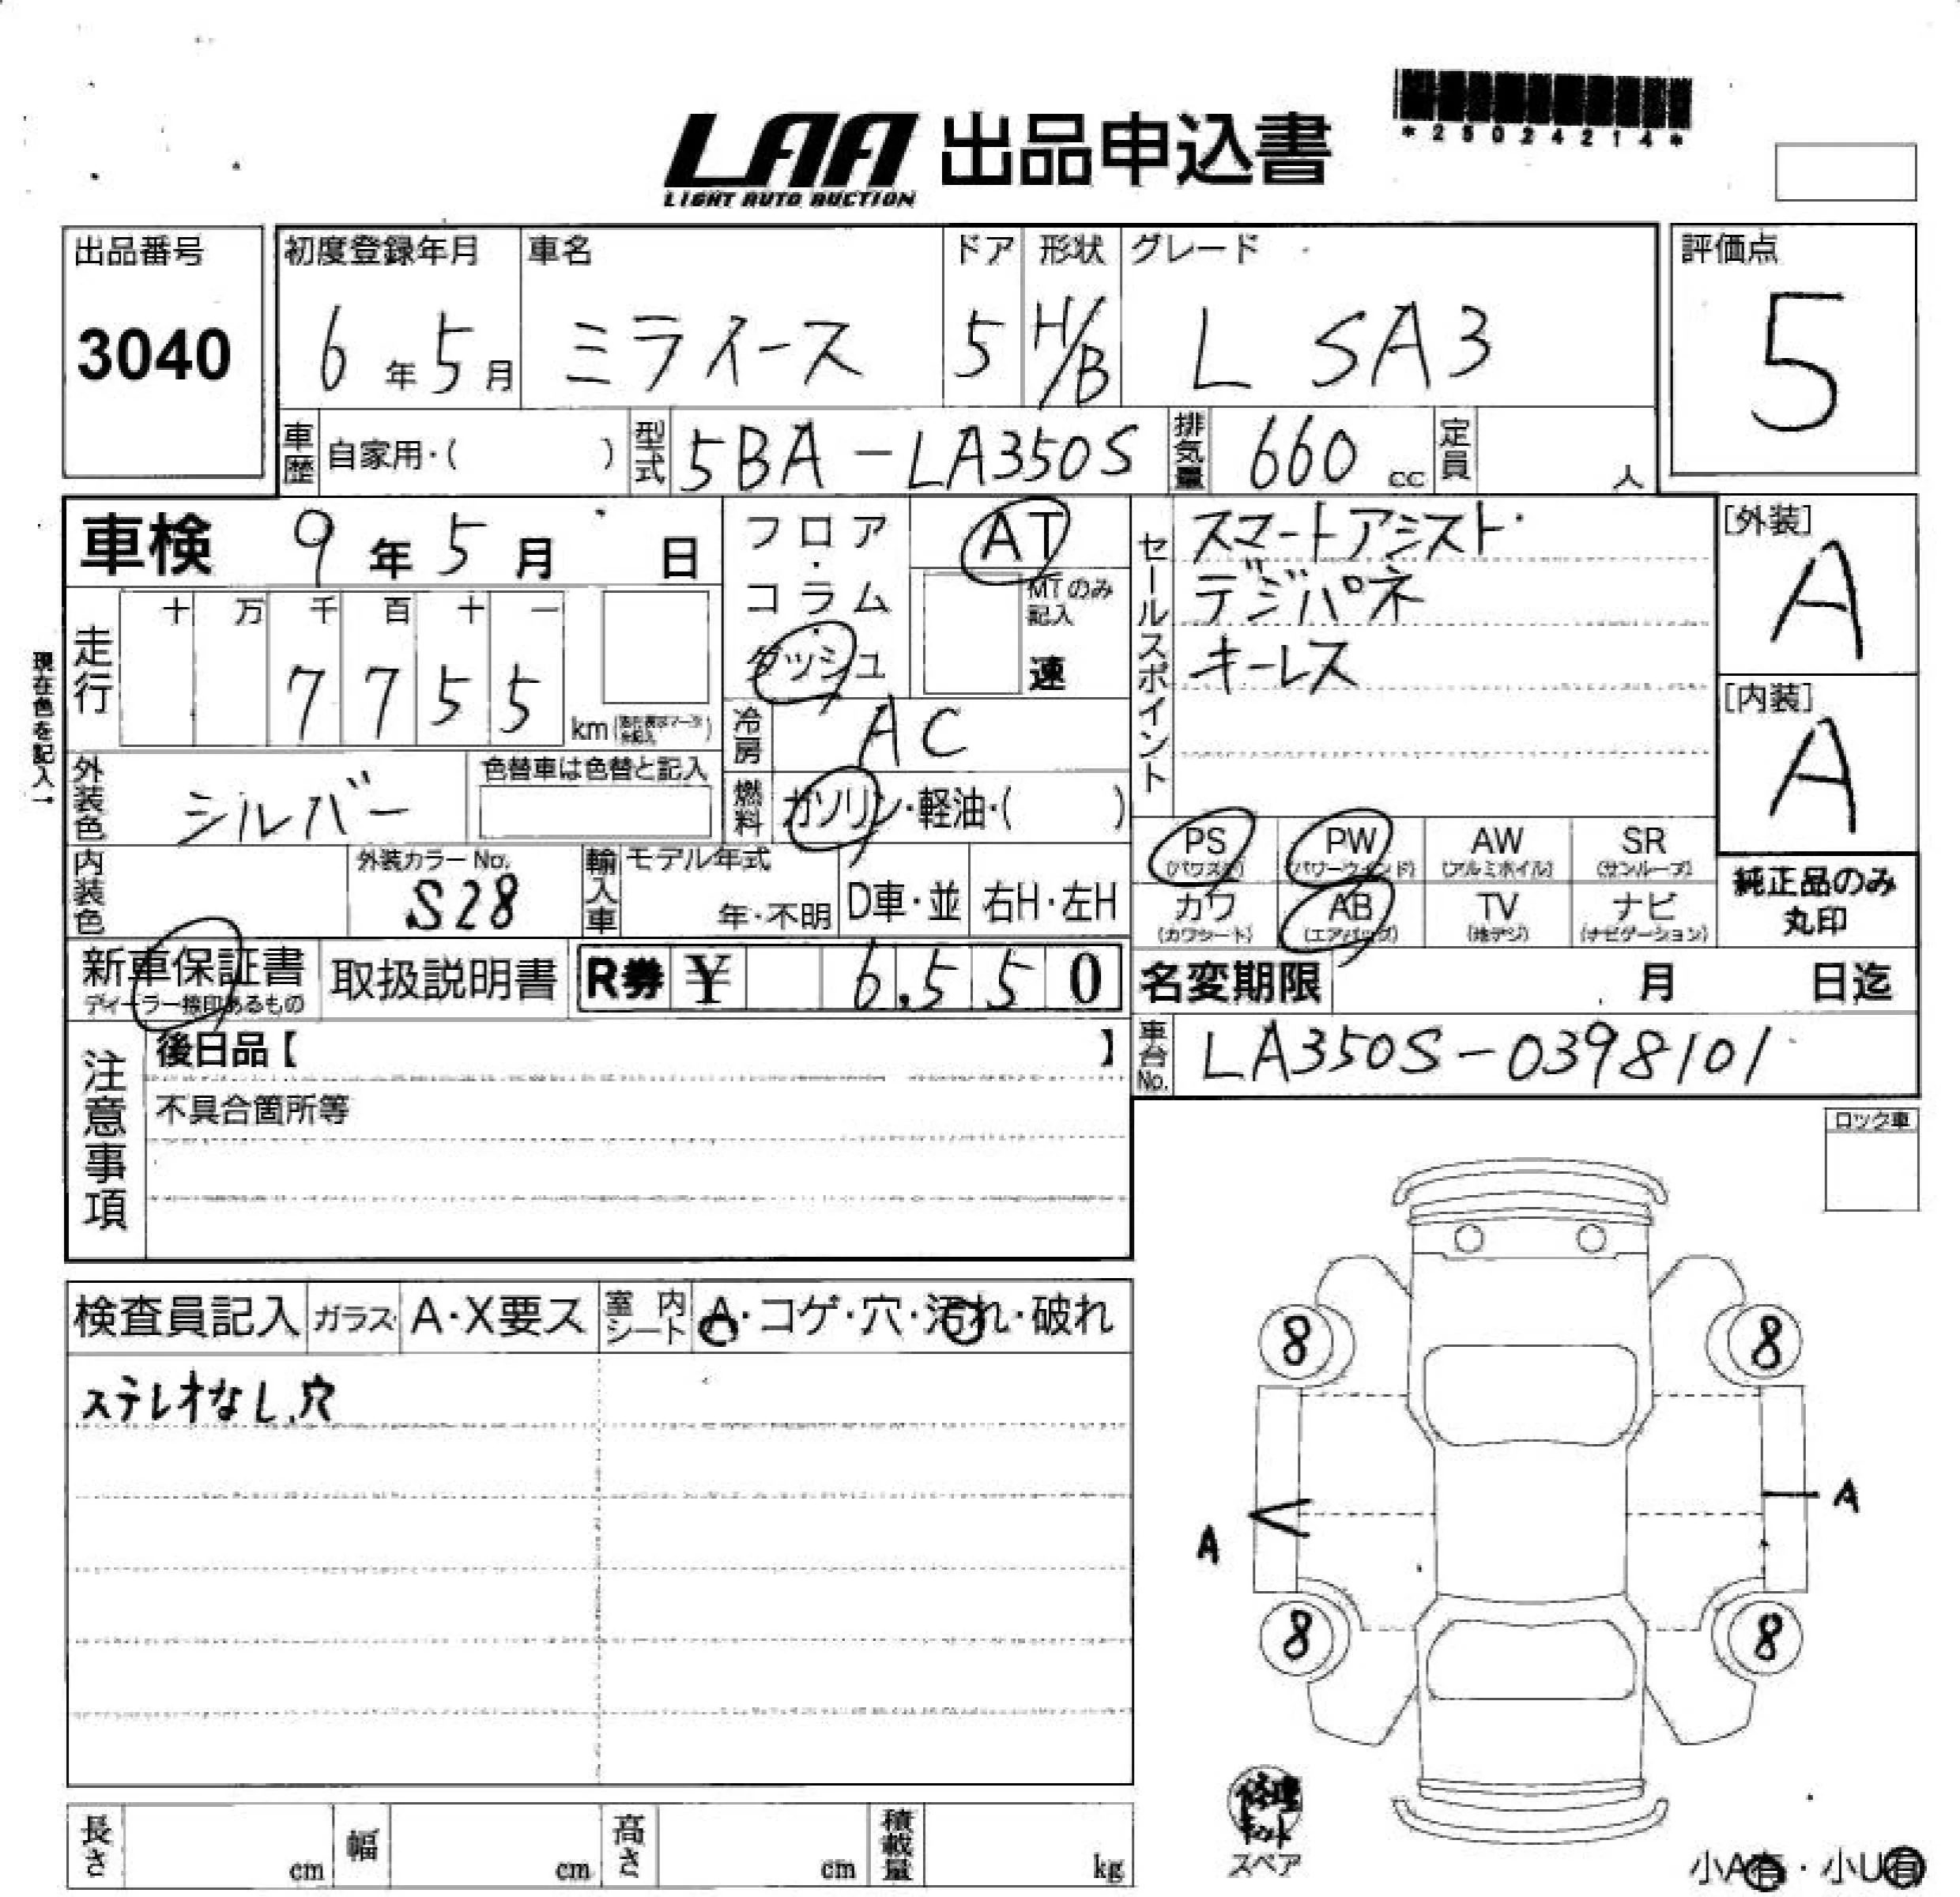 *25024214*
LAA 出品申込書
LIGHT AUTO AUCTION
出品番号 初度登録年月 車名 ドア 形状 グレード 評価点
3040 6年5月 ミライース 5 H/B L SA3 5
車歴 自家用・( ) 型式 5BA-LA350S 排気量 660 cc 定員 人
車検 9年5月 日
フロア・コラム・ダッシュ
AT
MTのみ記入
速
セールスポイント
スマートアシスト
デジパネ
キーレス
[外装]
A
[内装]
A
現在色を記入→
走行 十 万 千 百 十 一
7 7 5 5 km
冷房 AC
外装色 シルバー 色替車は色替と記入
燃料 ガソリン・軽油・( )
PS (パワステ) PW (パワーウインド) AW (アルミホイル) SR (サンルーフ)
カワ (カワシート) AB (エアバッグ) TV (地デジ) ナビ (ナビゲーション)
純正品のみ
丸印
内装色 外装カラーNo. S28 輸入車 モデル年式 年・不明 D車・並 右H・左H
新車保証書 ディーラー捺印あるもの 取扱説明書 R券 ¥ 6,550
名変期限 月 日迄
車台No. LA350S-0398101
注意事項
後日品【 】
不具合箇所等
ロック車
検査員記入 ガラス A・X要ス 室内シート A・コゲ・穴・汚れ・破れ
ステレオなし、穴
8 8
A A
8 8
修理キット
スペア
長さ cm 幅 cm 高さ cm 積載量 kg
小A有・小U有